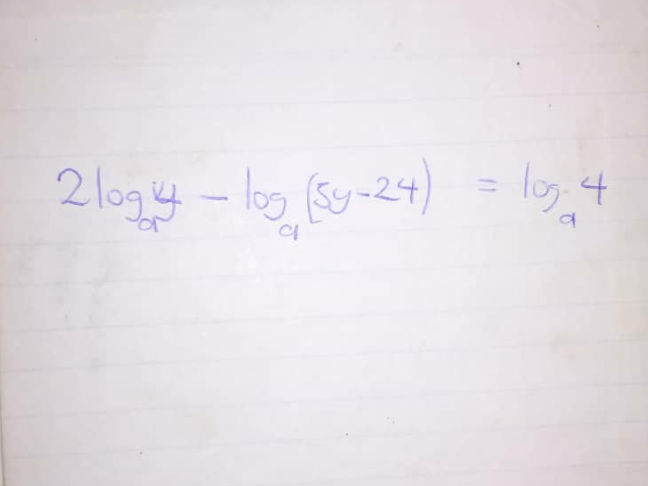 2 logₐ y − logₐ (5y−24) = logₐ 4